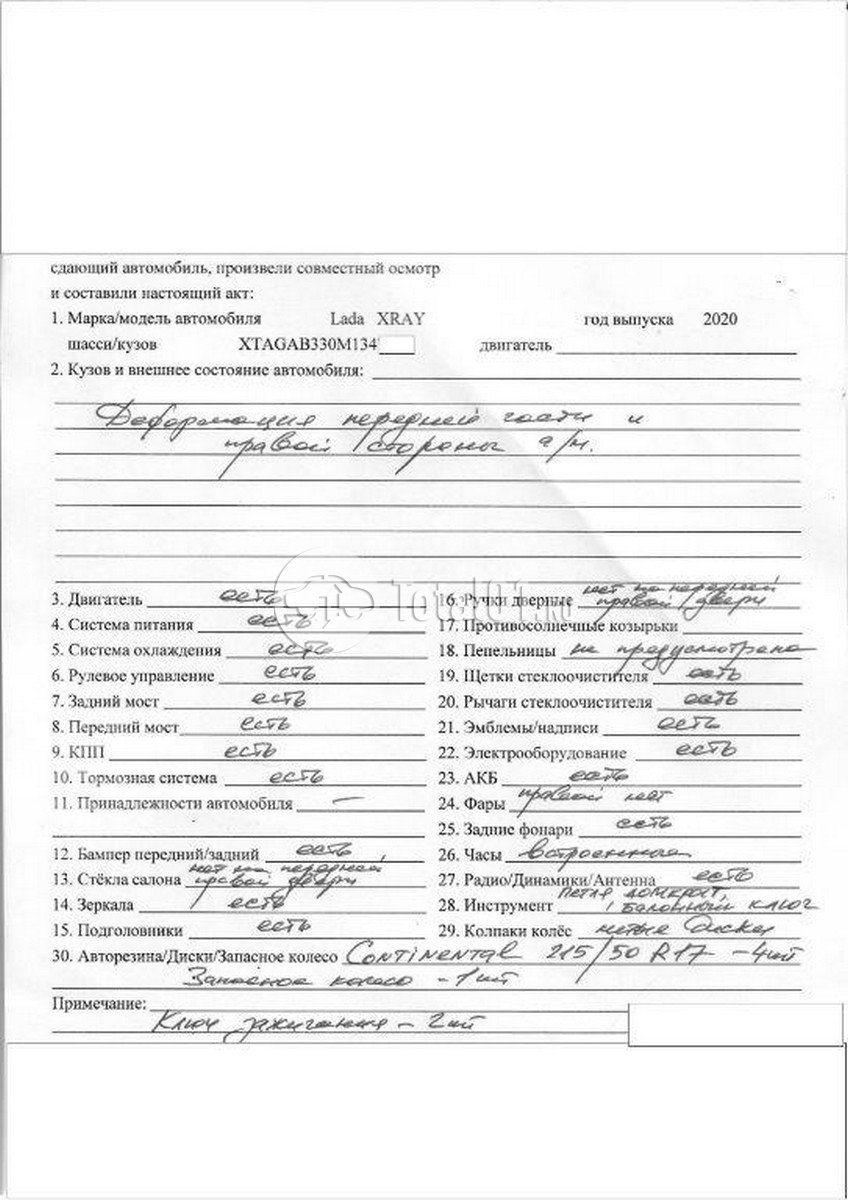 сдающий автомобиль, произвели совместный осмотр
и составили настоящий акт:
1. Марка/модель автомобиля Lada XRAY год выпуска 2020
шасси/кузов XTAGAB330M134 двигатель
2. Кузов и внешнее состояние автомобиля:
Деформация передней части и
правой стороны а/м.
Total01.ru
3. Двигатель есть
4. Система питания есть
5. Система охлаждения есть
6. Рулевое управление есть
7. Задний мост есть
8. Передний мост есть
9. КПП есть
10. Тормозная система есть
11. Принадлежности автомобиля —
12. Бампер передний/задний есть
13. Стёкла салона нет на передней
правой двери
14. Зеркала есть
15. Подголовники есть
16. Ручки дверные нет на передней
правой двери
17. Противосолнечные козырьки
18. Пепельницы не предусмотрена
19. Щетки стеклоочистителя есть
20. Рычаги стеклоочистителя есть
21. Эмблемы/надписи есть
22. Электрооборудование есть
23. АКБ есть
24. Фары правой нет
25. Задние фонари есть
26. Часы встроенные
27. Радио/Динамики/Антенна есть
28. Инструмент петля, домкрат,
балонный ключ
29. Колпаки колёс литые диски
30. Авторезина/Диски/Запасное колесо Continental 215/50 R17 - 4шт
Запасное колесо - 1шт
Примечание:
Ключ зажигания - 2шт